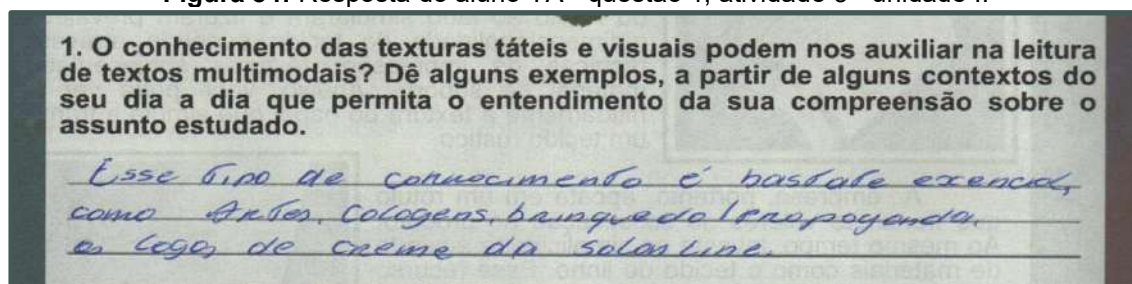 Figura 84: Resposta do aluno 1A - questão 1, atividade 3 - unidade II
1. O conhecimento das texturas táteis e visuais podem nos auxiliar na leitura
de textos multimodais? Dê alguns exemplos, a partir de alguns contextos do
seu dia a dia que permita o entendimento da sua compreensão sobre o
assunto estudado.
Esse tipo de conhecimento é bastate exencial,
como Artes, cologens, brinquedo/propoganda,
logo, de creme da Salon Line.